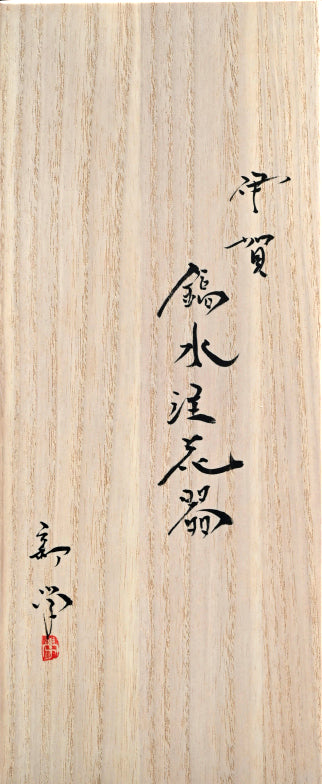 伊賀
鎬水注花器
新学